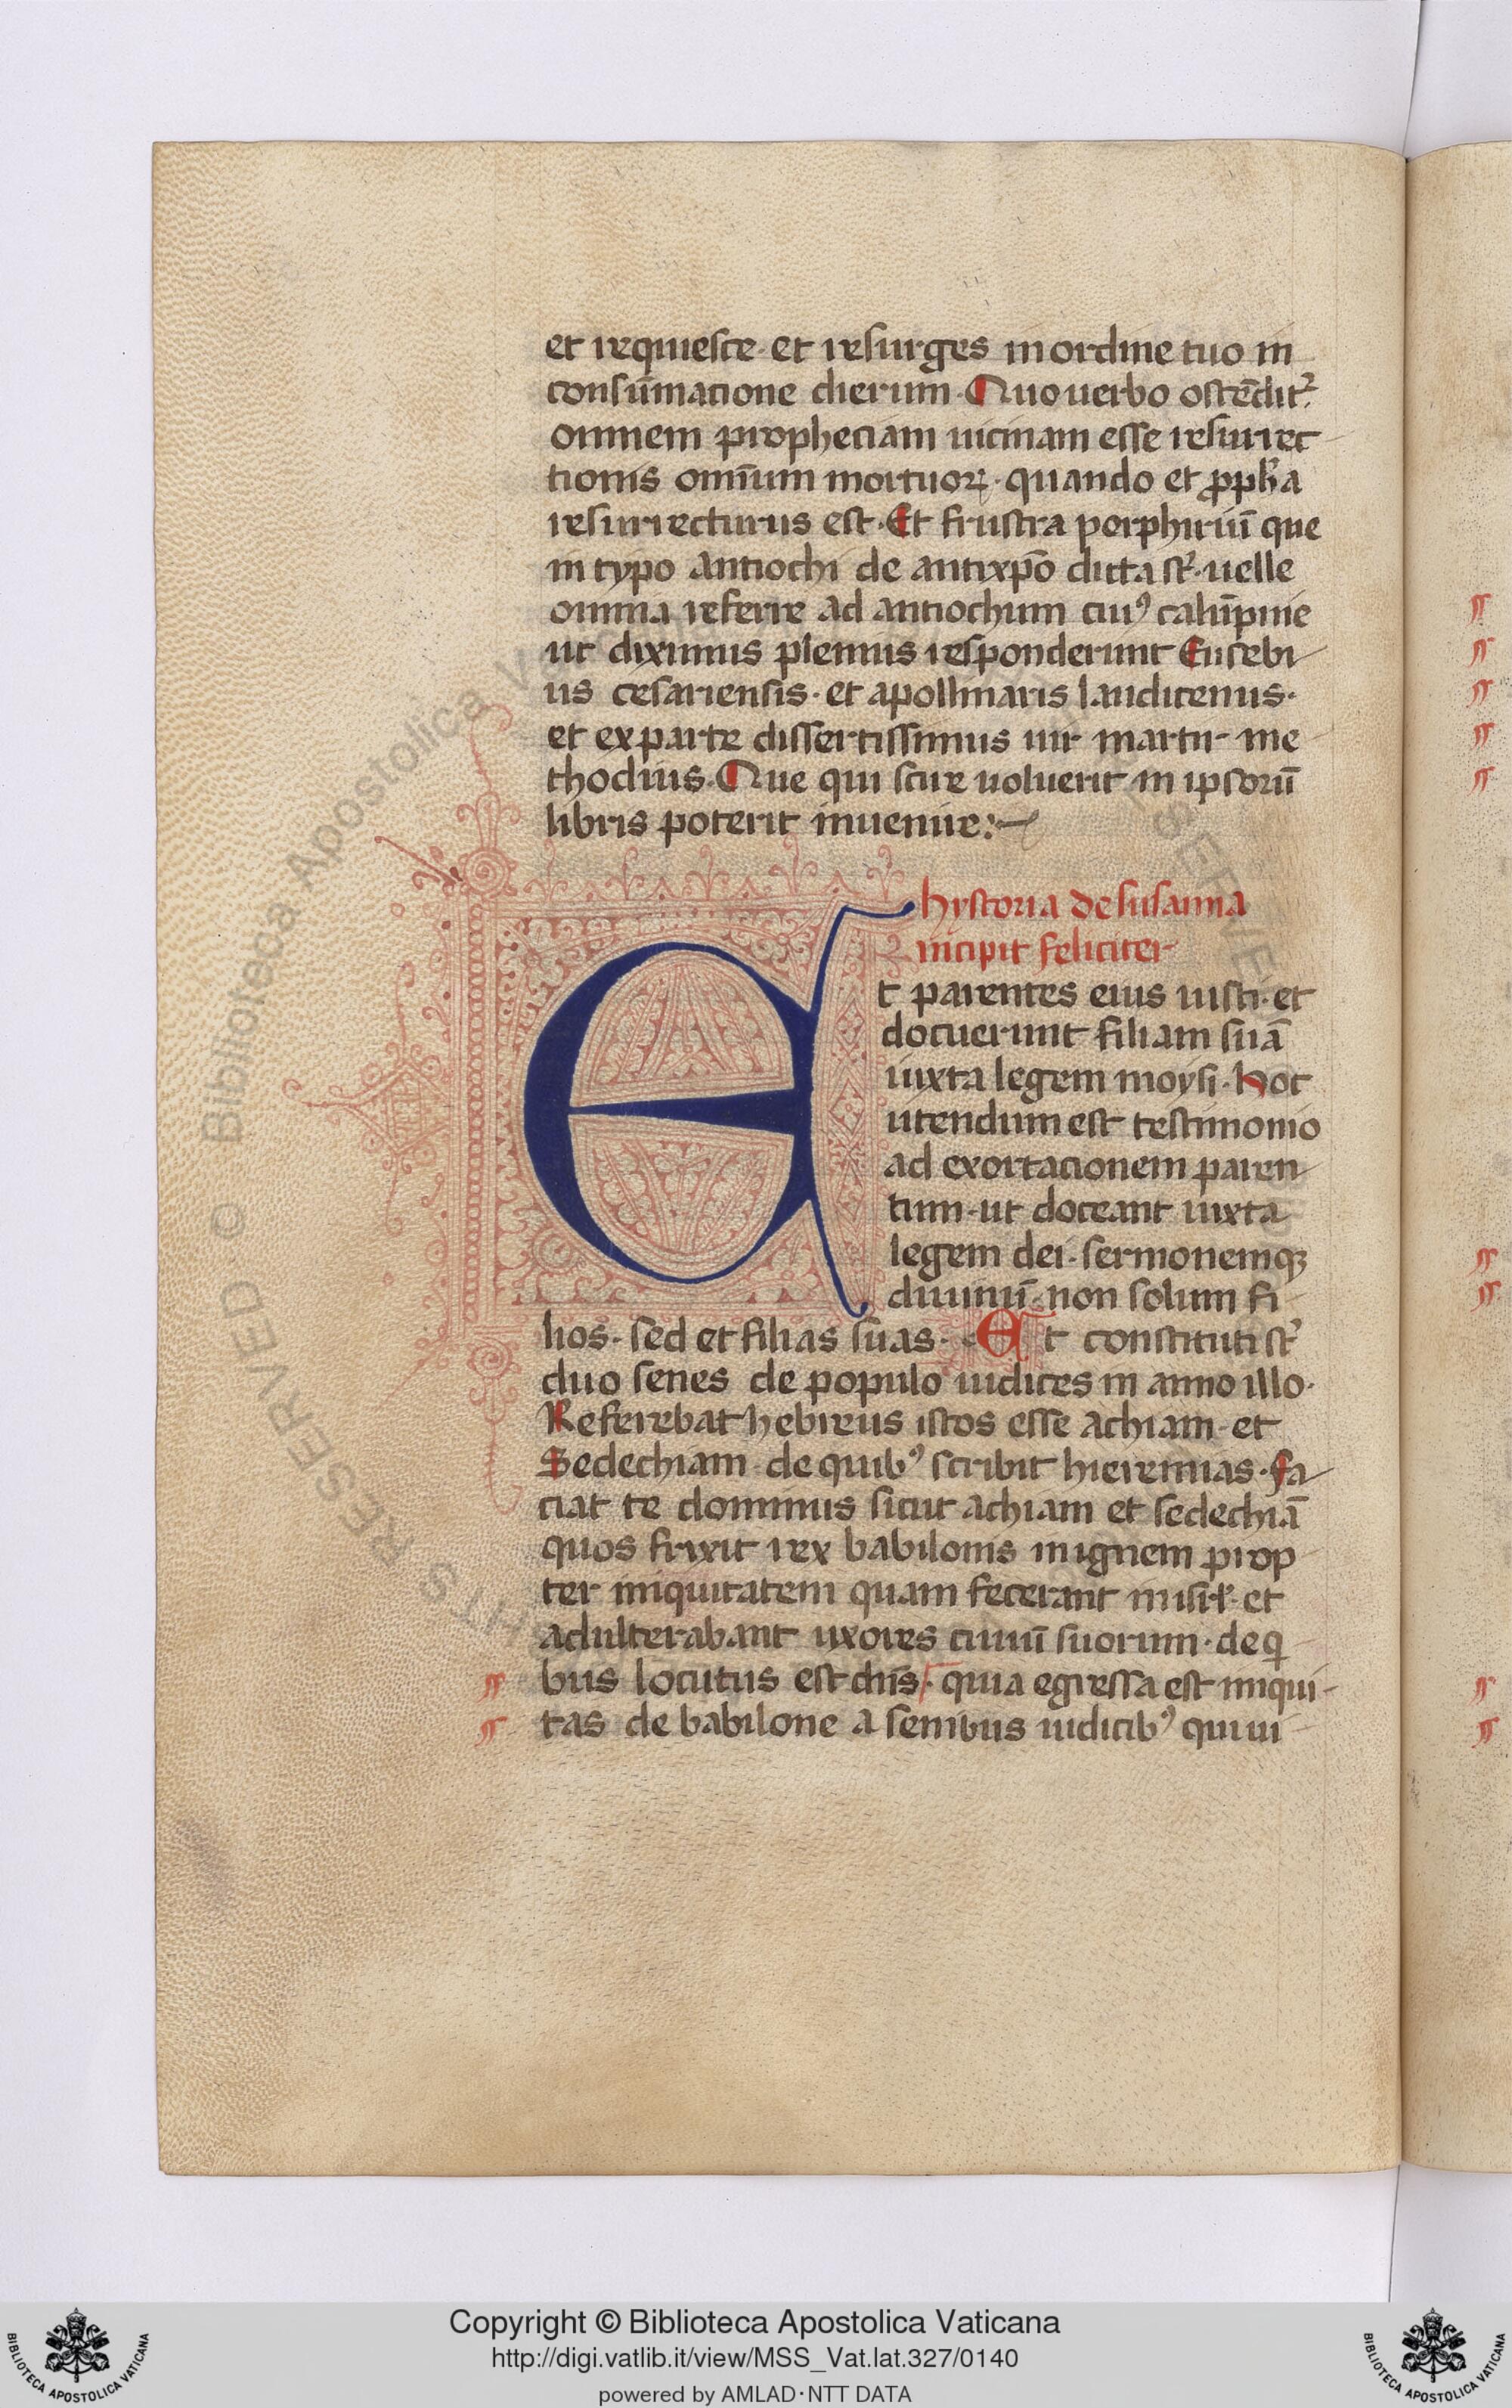 et requiesce· et resurges in ordine tuo in
consūmacione dierum· Quo uerbo ostēdit̉
omnem propheciam uicinam esse resurrec
tionis omĩum mortuoꝝ· quando et ꝓph̃a
resurrecturus est· Et frustra porphiriũ que
in typo antiochi de antixp̃o dicta st̉· uelle
omnia referre ad antiochum cuiꝰ calũpnie
ut diximus plenius responderunt Eusebi
us cesariensis· et apollinaris laudicenus·
et ex parte dissertissimus uir martir me
thodius· Que qui scire uoluerit in ipsorũ
libris poterit inuenire:~
hystoria de susanna
incipit feliciter
Et parentes eius iusti· et
docuerunt filiam suā
iuxta legem moysi· Hoc
utendum est testimonio
ad exortacionem paren
tum· ut doceant iuxta
legem dei· sermonemqꝫ
diuinũ· non solum fi
lios· sed et filias suas· Et constituti st̉
duo senes de populo iudices in anno illo·
Referebat hebreus istos esse achiam· et
Sedechiam· de quibꝰ scribit hieremias· Fa
ciat te dominus sicut achiam et sedechiā
quos frixit rex babilonis in ignem prop
ter iniquitatem quam fecerant in isrł· et
adulterabant uxores ciuiũ suorum· de qͥ
bus locutus est dñs· quia egressa est iniqui
tas de babilone a senibus iudicibꝰ qui ui
Copyright © Biblioteca Apostolica Vaticana
http://digi.vatlib.it/view/MSS_Vat.lat.327/0140
powered by AMLAD·NTT DATA
BIBLIOTECA APOSTOLICA VATICANA
BIBLIOTECA APOSTOLICA VATICANA